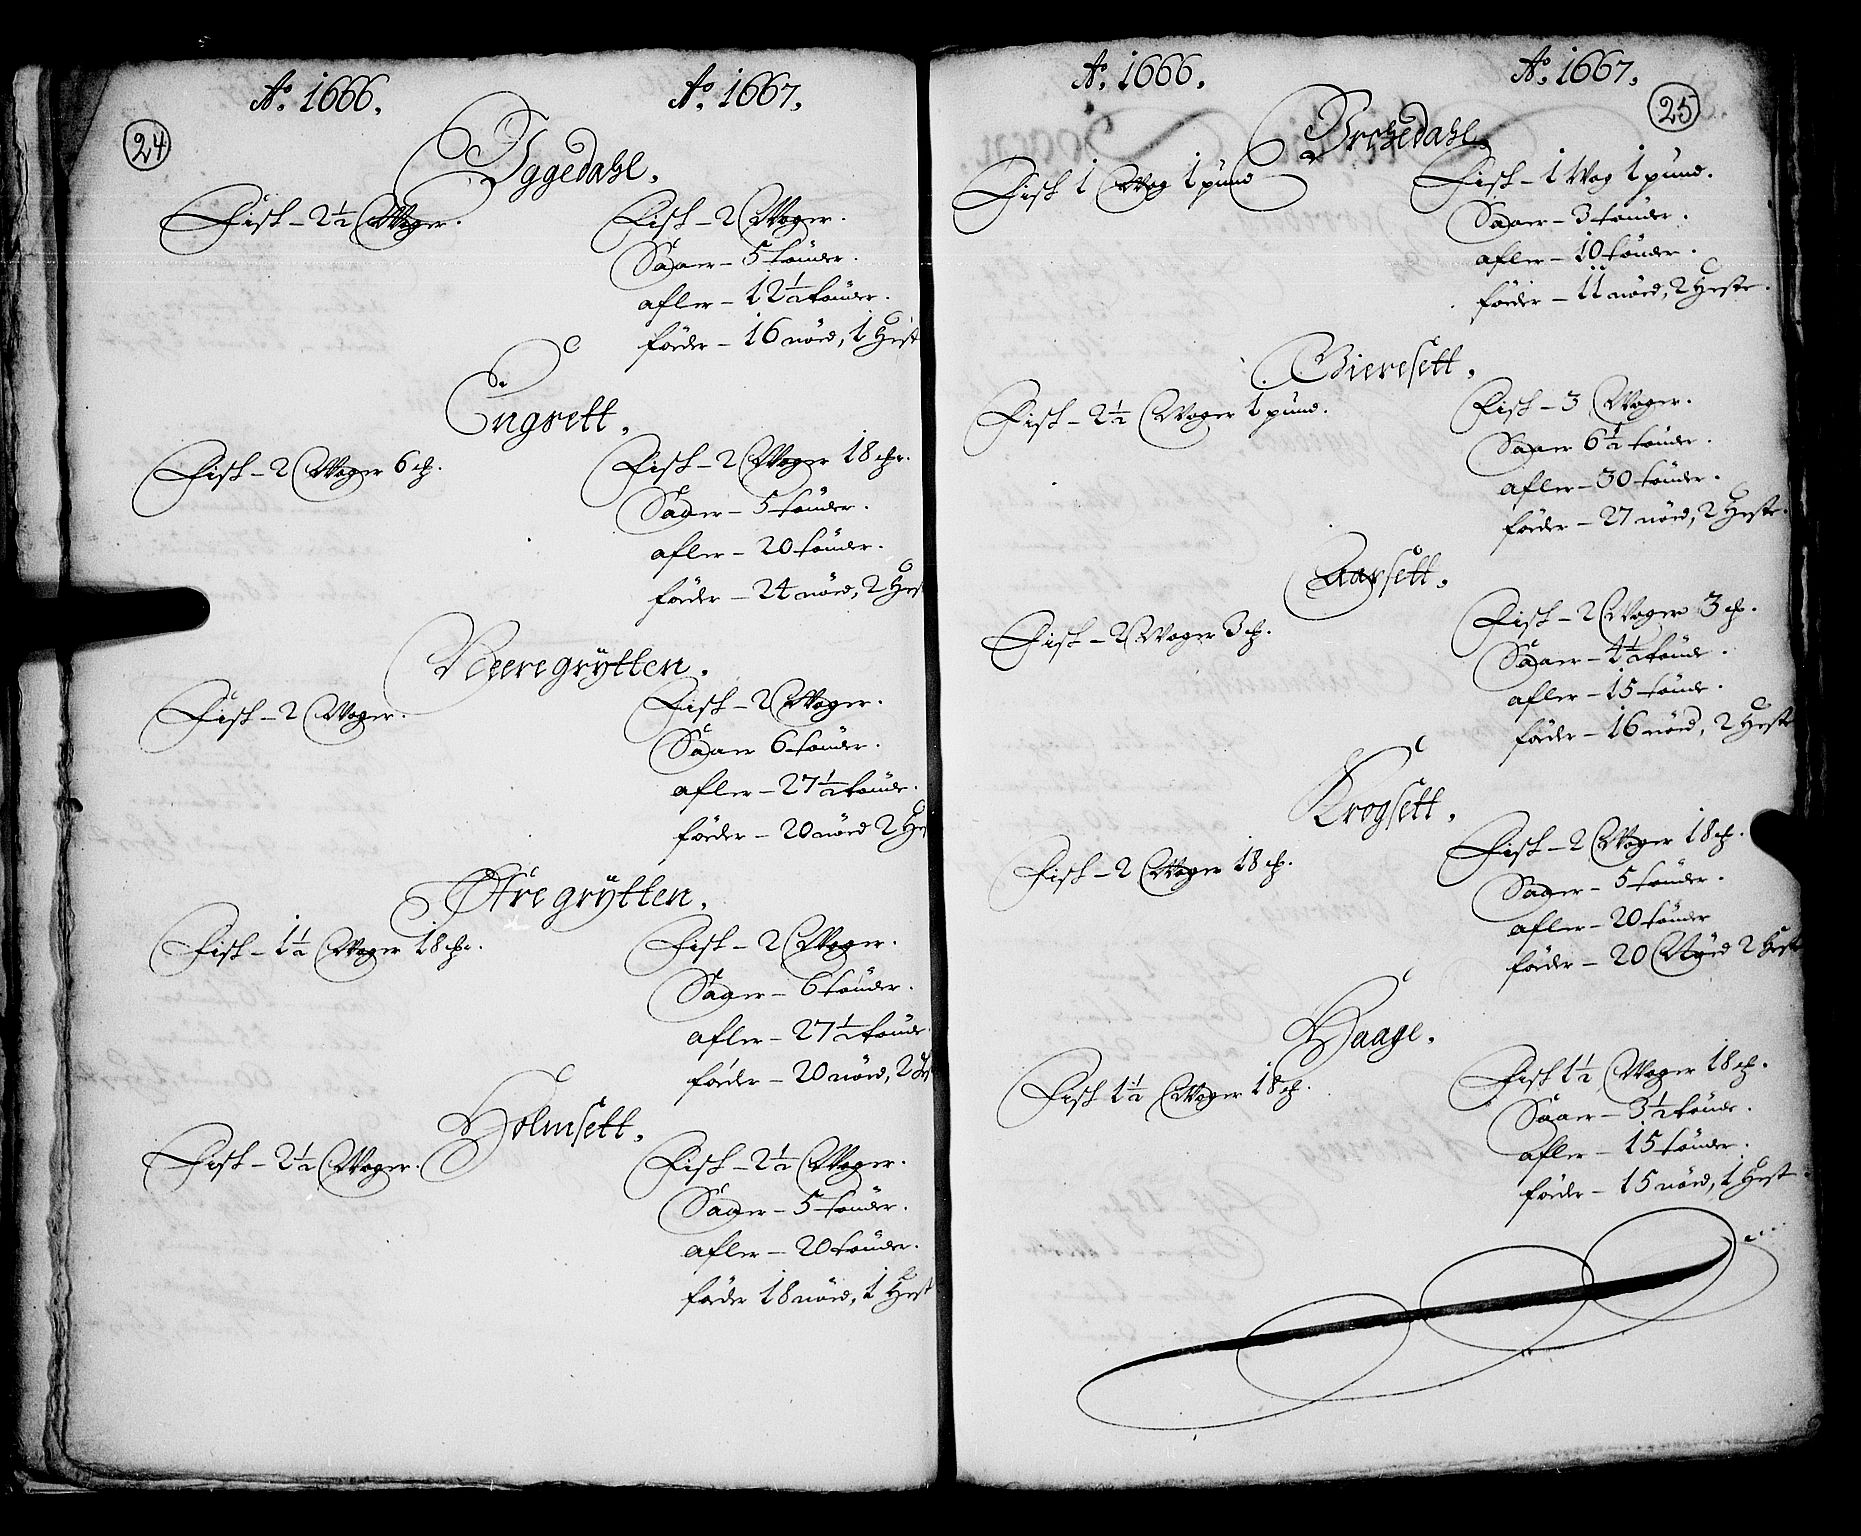 24
Ao. 1666. Ao. 1667.
Yggedahl.
Fisk - 2½ Woger. Fisk - 2 Woger.
Saaer - 5 tønder.
afler - 12½ tønder.
føder - 16 nöed, 1 Hest
Engsett.
Fisk - 2 Woger 6 ℔. Fisk - 2 Woger 18 ℔.
Saaer - 5 tønder.
afler - 20 tønder.
føder - 24 nöed, 2 Hest
Neeregrÿtten.
Fisk - 2 Woger. Fisk - 2 Woger.
Saaer 6 tønder.
afler - 27½ tønde.
føder - 20 nöed 2 He
Øfregrÿtten.
Fisk - 1½ Woger 18 ℔. Fisk - 2 Woger.
Saaer - 6 tønder.
afler - 27½ tønde.
føder - 20 nöed, 2 He
Holmsett.
Fisk - 2½ Woger. Fisk - 2½ Woger.
Saaer - 5 tønder.
afler - 20 tønder.
føder 18 nöed, 1 Hest
25
Ao. 1666. Ao. 1667.
Fisk 1 Wog 1 pund Fisk - 1 Wog 1 pund.
Saaer - 3 tønder.
afler - 10 tønder.
føder - 11 nöed, 2 Heste.
Gieresett.
Fisk - 2½ Woger 1 pund. Fisk - 3 Woger.
Saaer 6½ tønder.
afler - 30 tønder.
føder - 27 nöed, 2 Heste.
Aarsett.
Fisk - 2 Woger 3 ℔. Fisk - 2 Woger 3 ℔.
Saaer - 4½ tønde.
afler - 15 tønde.
føder - 16 nöed, 2 Heste
Krogsett.
Fisk - 2 Woger 18 ℔. Fisk - 2 Woger 18 ℔.
Saaer - 5 tønder.
afler - 20 tønder
føder - 20 Nöed 2 Heste
Haage.
Fisk 1½ Woger 18 ℔. Fisk 1½ Woger 18 ℔.
Saaer - 3½ tønde.
afler - 15 tønder.
føder - 15 nöed, 1 Hest